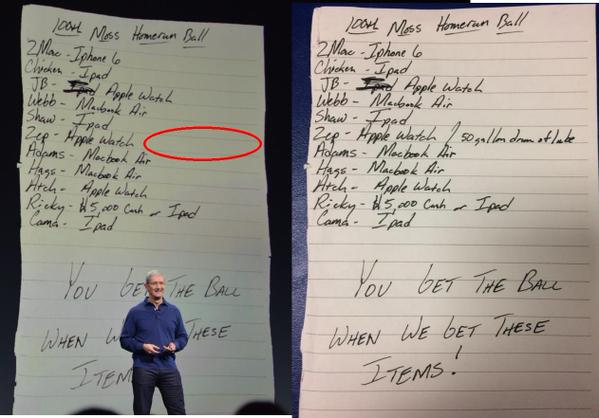 100th Moss Homerun Ball
2Mac - Iphone 6
Chicken - Ipad
JB - Ipad Apple Watch
Webb - Macbook Air
Shaw - Ipad
Zep - Apple Watch
Adams - Macbook Air
Hags - Macbook Air
Htch - Apple Watch
Ricky - $5,000 Cash or Ipad
Cama - Ipad
YOU GET THE BALL
WHEN WE GET THESE
ITEMS
100th Moss Homerun Ball
2Mac - Iphone 6
Chicken - Ipad
JB - Ipad Apple Watch
Webb - Macbook Air
Shaw - Ipad
Zep - Apple Watch / 50 gallon drum of lube
Adams - Macbook Air
Hags - Macbook Air
Htch - Apple Watch
Ricky - $5,000 Cash or Ipad
Cama - Ipad
YOU GET THE BALL
WHEN WE GET THESE
ITEMS!